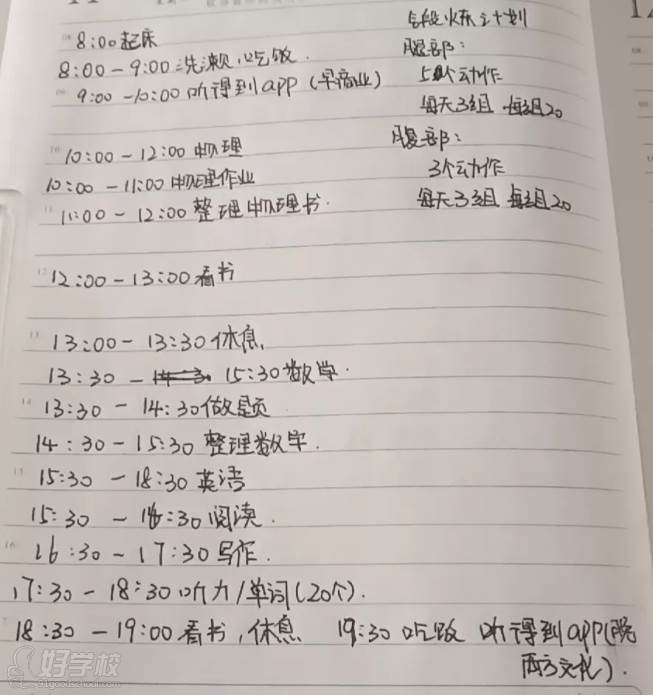 8:00起床
8:00-9:00洗漱、吃饭
9:00-10:00听得到app(早商业)
10:00-12:00物理
10:00-11:00物理作业
11:00-12:00整理物理书.
12:00-13:00看书
13:00-13:30休息
13:30-15:30数学.
13:30-14:30做题
14:30-15:30整理数学.
15:30-18:30英语
15:30-16:30阅读.
16:30-17:30写作.
17:30-18:30听力/单词(20个).
18:30-19:00看书,休息 19:30吃饭 听得到app(晚
西方文化).
锻炼计划
腿部:
5个动作
每天3组 每组20
腹部:
3个动作
每天3组 每组20
好学校
51goodschool.com